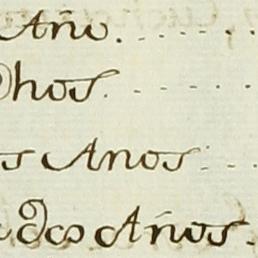 Año.
Dhos
os Anos
a dos Años.